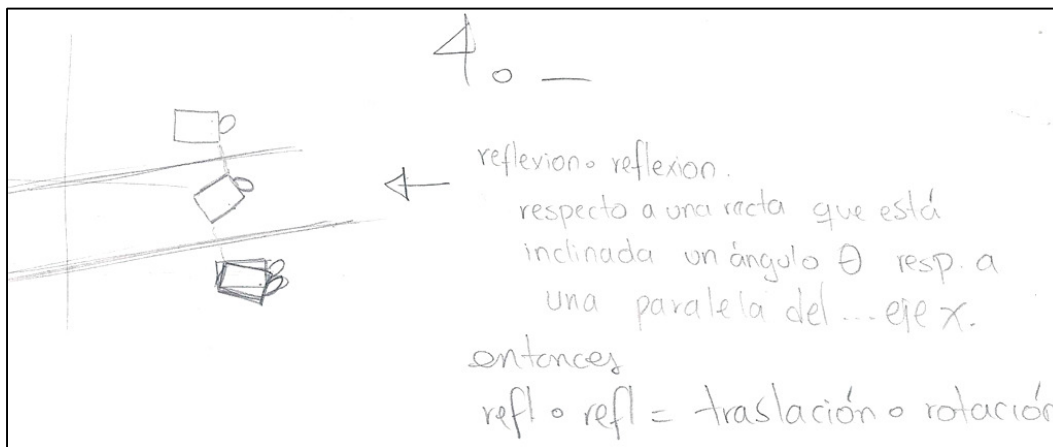 4.-
reflexion∘ reflexion.
respecto a una recta que está
inclinada un ángulo θ resp. a
una paralela del ... eje x.
entonces
refl ∘ refl = traslación ∘ rotación